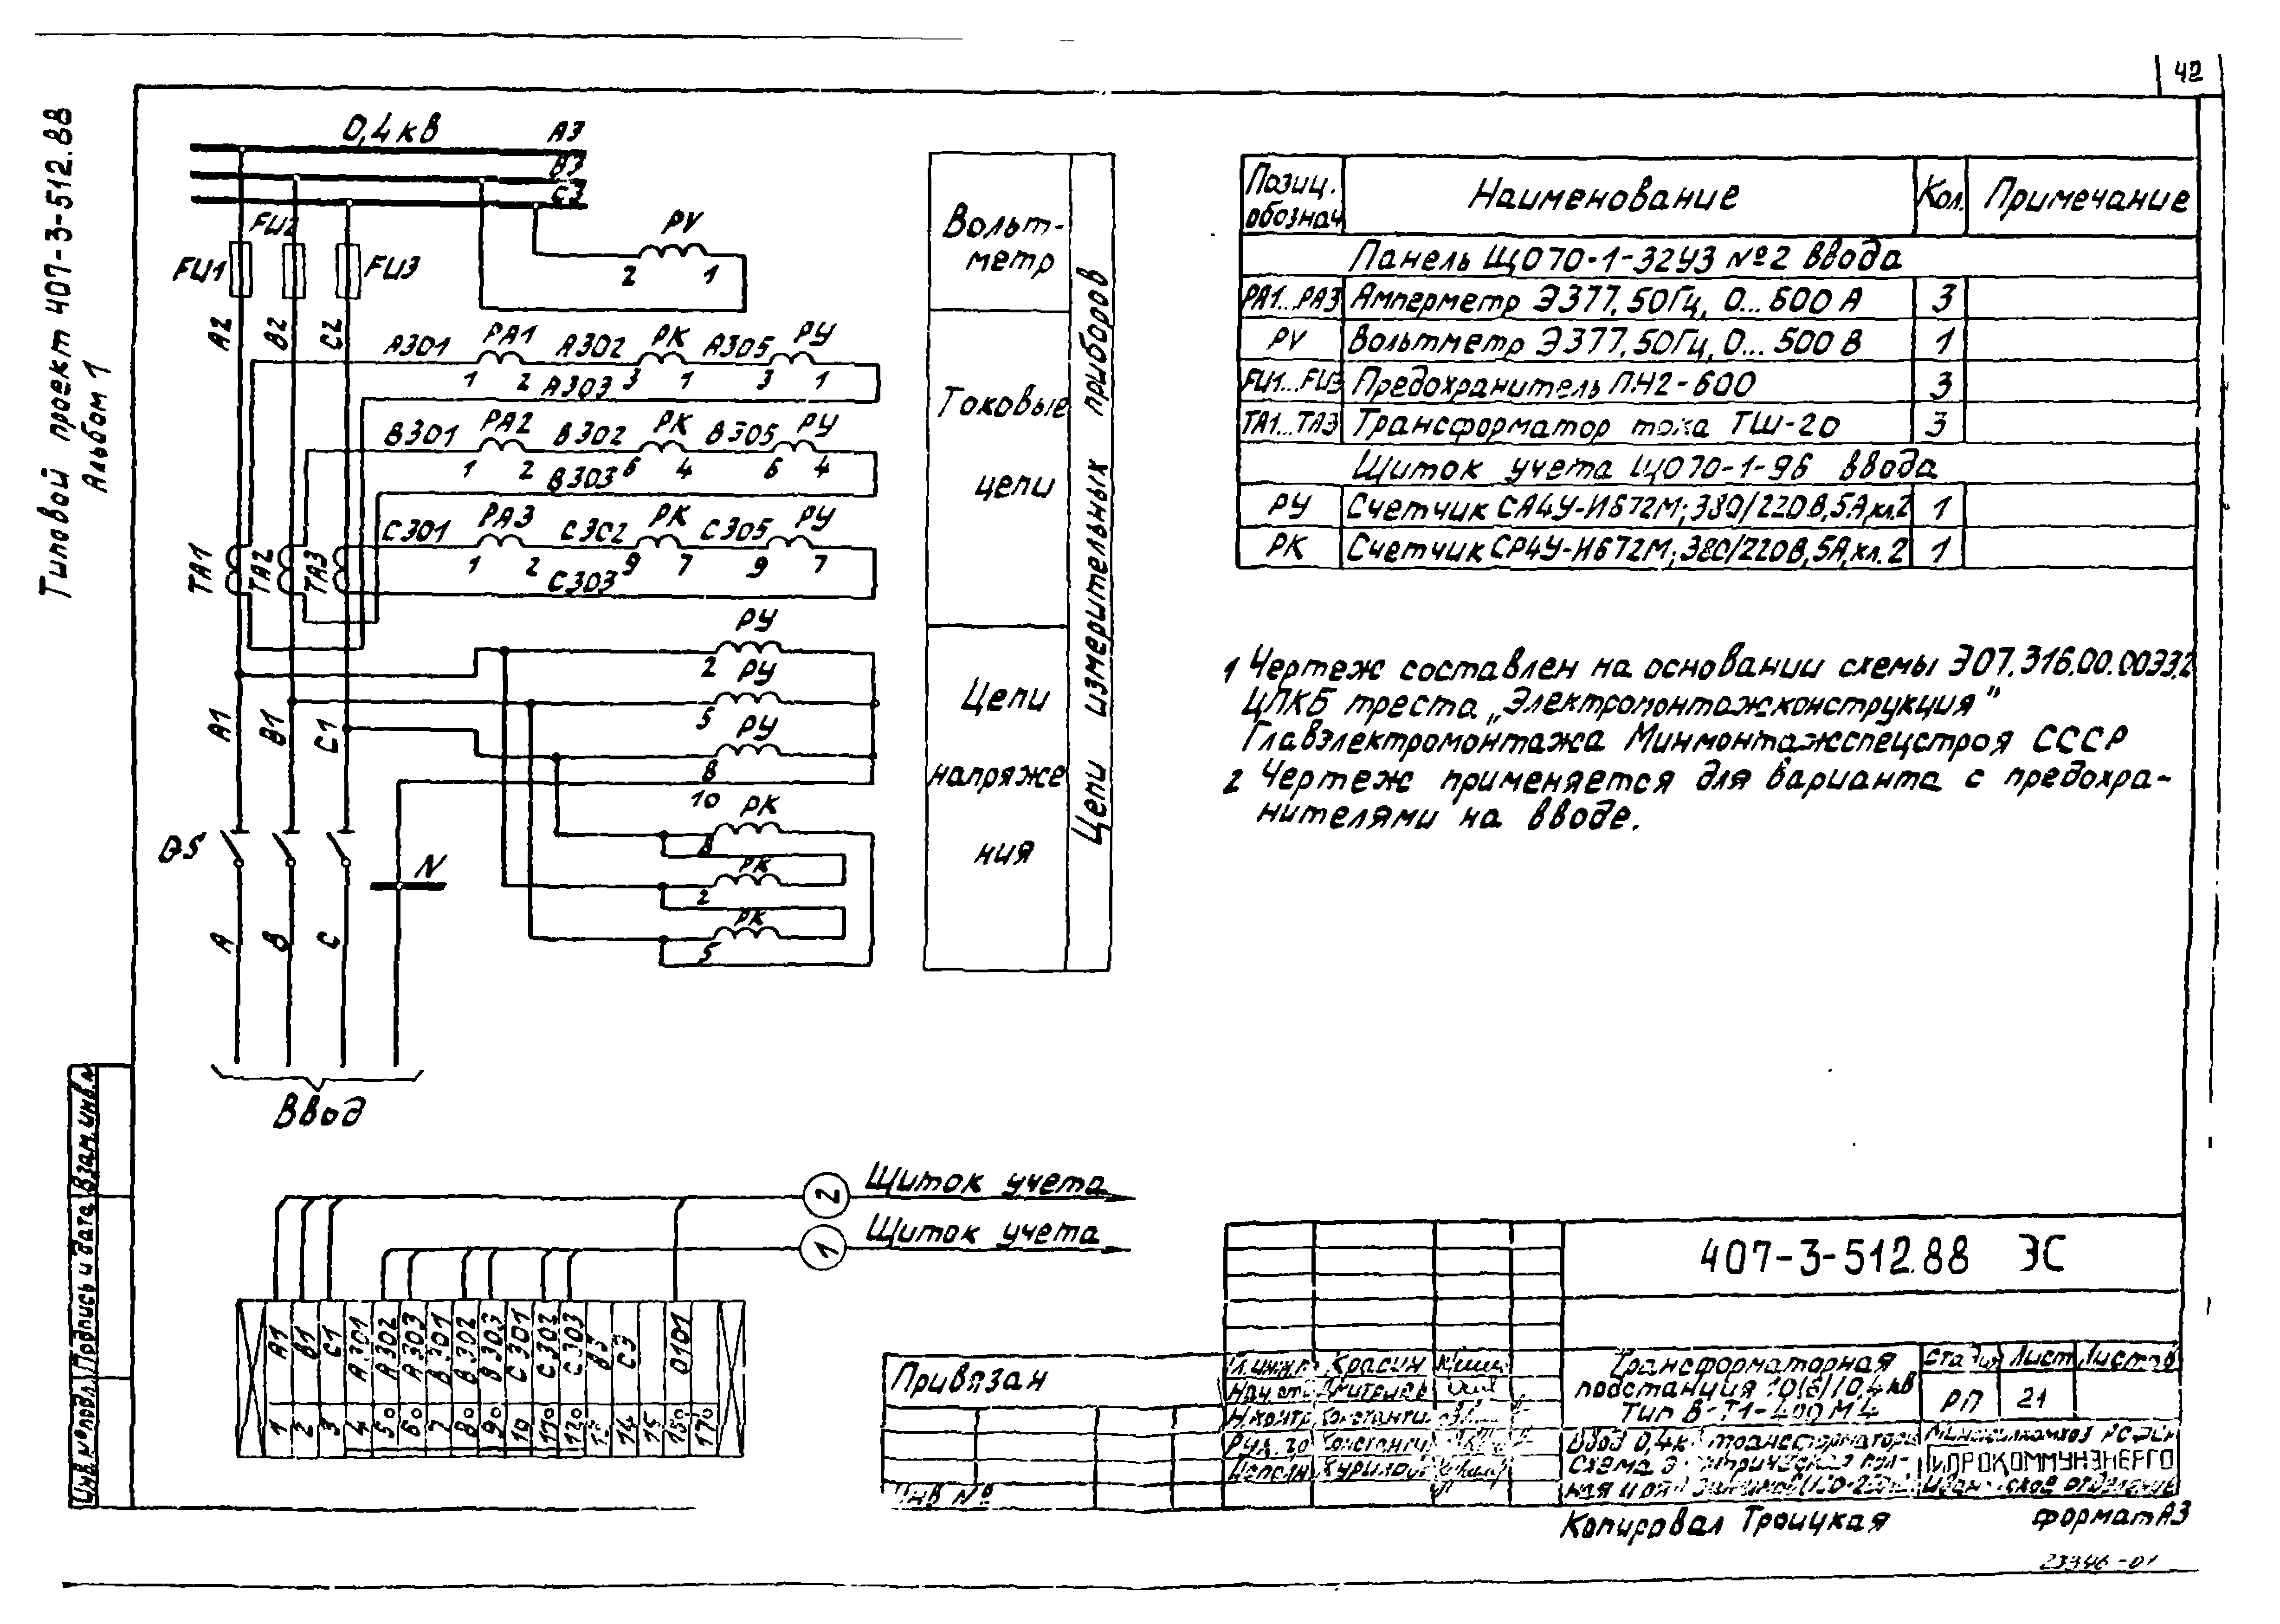 42
Типовой проект 407-3-512.88
Альбом 1
0,4 кВ
А3
В3
С3
FU2
FU1
FU3
PV
2 1
А2
В2
С2
А301 РА1 А302 РК А305 РУ
1 2 А303 3 1 3 1
В301 РА2 В302 РК В305 РУ
1 2 В303 6 4 6 4
С301 РА3 С302 РК С305 РУ
1 2 С303 9 7 9 7
ТА1
ТА2
ТА3
РУ
2 РУ
5 РУ
8
10 РК
8 РК
2 РК
5
А1
В1
С1
QS
N
А
В
С
Ввод
Вольт-
метр
Токовые
цепи
Цепи
напряже
ния
Цепи измерительных приборов
Позиц. обознач Наименование Кол. Примечание
Панель ЩО70-1-32У3 №2 ввода
РА1...РА3 Амперметр Э377, 50Гц, 0...600 А 3
PV Вольтметр Э377, 50Гц, 0...500 В 1
FU1...FU3 Предохранитель ПН2-600 3
ТА1...ТА3 Трансформатор тока ТШ-20 3
Щиток учета ЩО70-1-96 ввода
РУ Счетчик СА4У-И672М; 380/220В, 5А, кл.2 1
РК Счетчик СР4У-И672М; 380/220В, 5А, кл.2 1
1 Чертеж составлен на основании схемы Э07.316.00.00ЭЗ.2
ЦПКБ треста „Электромонтажконструкция"
Главэлектромонтажа Минмонтажспецстроя СССР
2 Чертеж применяется для варианта с предохра-
нителями на вводе.
2 Щиток учета
1 Щиток учета
А1 В1 С1 А301 А302 А303 В301 В302 В303 С301 С302 С303 В3 С3 0101
1 2 3 4 5 6 7 8 9 10 11 12 13 14 15 16 17
Инв.№подл. Подпись и дата Взам.инв.№
Привязан
Инв №
407-3-512.88 ЭС
Гл.инж.п Красин
Нач.от Дмитриев
Н.контр. Константи
Рук.гр Константи
Исполн Курилов
Трансформаторная
подстанция 10(6)/0,4кВ
Тип В-Т1-400 М4
Стадия Лист Листов
РП 21
Ввод 0,4кВ трансформатора
Схема электрическая пол-
ная и ряд зажимов
Минжилкомхоз РСФСР
ГИПРОКОММУНЭНЕРГО
Ивановское отделение
Копировал Троицкая
формат А3
23346-01